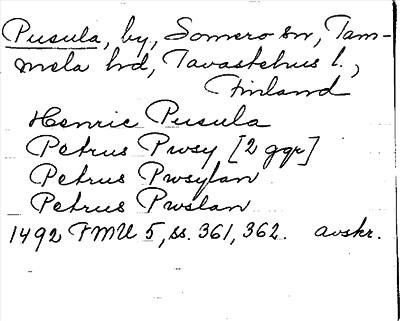 Pusula, by, Somero sn, Tam-
mela hd, Tavastehus l.,
Finland
Henric Pusula
Petrus Pwsy [2 ggr]
Petrus Pwsylan
Petrus Pwslan
1492 FMU 5, ss. 361, 362. avskr.